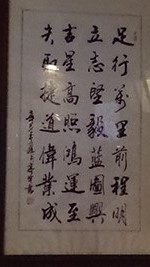 足行萬里前程明
立志堅毅藍圖興
吉星高照鴻運至
夫取捷道偉業成